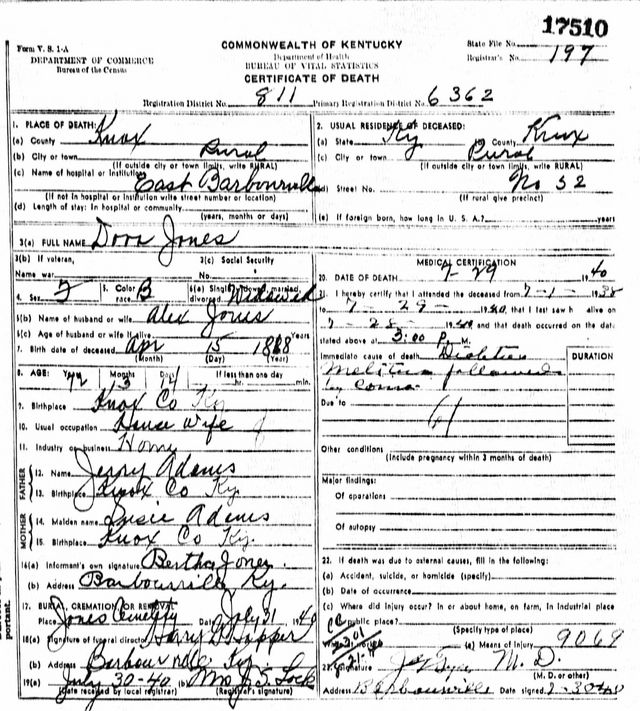 17510
Form V. S. 1-A
DEPARTMENT OF COMMERCE
Bureau of the Census
COMMONWEALTH OF KENTUCKY
Department of Health
BUREAU OF VITAL STATISTICS
CERTIFICATE OF DEATH
State File No.
Registrar's No. 197
Registration District No. 811 Primary Registration District No. 6362
1. PLACE OF DEATH:
(a) County Knox
(b) City or town Rural
(If outside city or town limits, write RURAL)
(c) Name of hospital or institution East Barbourville
(If not in hospital or institution write street number or location)
(d) Length of stay: In hospital or community
(years, months or days)
2. USUAL RESIDENCE OF DECEASED:
(a) State Ky County Knox
(c) City or town Rural
(If outside city or town limits, write RURAL)
(d) Street No. No 32
(If rural give precinct)
(e) If foreign born, how long in U. S. A.? years
3(a) FULL NAME Dora Jones
3(b) If veteran, 3(c) Social Security
Name war No.
4. Sex F 5. Color race B 6(a) Single, widowed, married, divorced Widowed
6(b) Name of husband or wife Alex Jones
6(c) Age of husband or wife if alive Years
7. Birth date of deceased Apr 15
(Month) (Day) (Year)
8. AGE: Years Months Days If less than one day
72 3 14 hr. min.
9. Birthplace Knox Co Ky
10. Usual occupation House Wife
11. Industry or business Home
FATHER
12. Name Jerry Adams
13. Birthplace Knox Co Ky.
MOTHER
14. Maiden name Susie Adams
15. Birthplace Knox Co Ky.
16(a) Informant's own signature Bertha Jones
(b) Address Barbourville Ky.
17. BURIAL, CREMATION OR REMOVAL
Place Jones Cemetery Date July 31 1940
18(a) Signature of funeral director Harry Hopper
(b) Address Barbourville Ky
19(a) July 30-40 (b) Mrs Lock
(Date received by local registrar) (Registrar's signature)
MEDICAL CERTIFICATION
20. DATE OF DEATH 7-29 1940
21. I hereby certify that I attended the deceased from 7-1- 1938
to 7-29- 1940, that I last saw h alive on
7-28 1940 and that death occurred on the date
stated above at 3:00 P. M.
Immediate cause of death Diabetes DURATION
Melitus followed
by coma
Due to
61
Other conditions
(Include pregnancy within 3 months of death)
Major findings:
Of operations
Of autopsy
22. If death was due to external causes, fill in the following:
(a) Accident, suicide, or homicide (specify)
(b) Date of occurrence
(c) Where did injury occur? In or about home, on farm, in industrial place
public place?
(Specify type of place)
(e) Means of injury 9069
23. Signature M. D.
(M. D. or other)
Address Barbourville Date signed 7-30-40
portant.